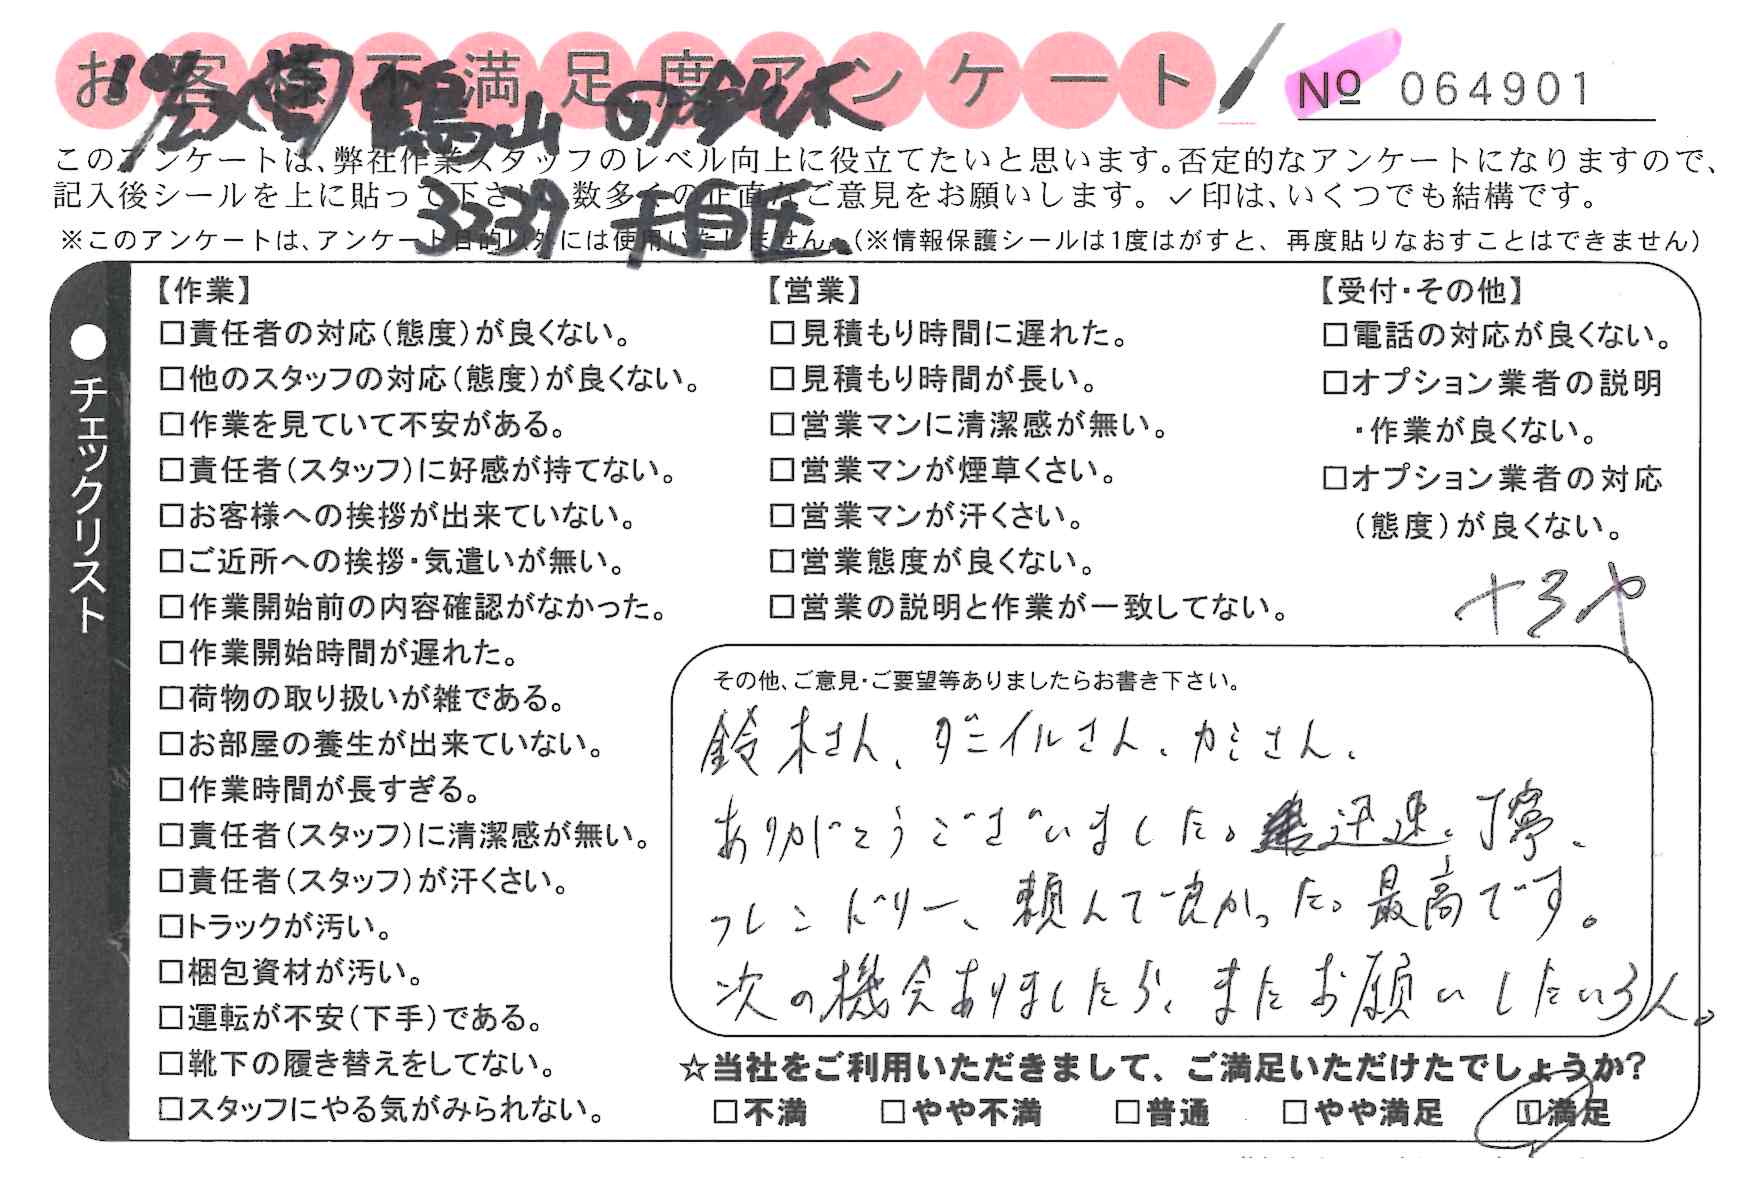 お客様不満足度アンケート
№ 064901
鶴山 の鈴木
3237
このアンケートは、弊社作業スタッフのレベル向上に役立てたいと思います。否定的なアンケートになりますので、
記入後シールを上に貼って下さい。数多くの正直なご意見をお願いします。✓印は、いくつでも結構です。
※このアンケートは、アンケート目的以外には使用いたしません。(※情報保護シールは1度はがすと、再度貼りなおすことはできません)
●チェックリスト
【作業】
□責任者の対応(態度)が良くない。
□他のスタッフの対応(態度)が良くない。
□作業を見ていて不安がある。
□責任者(スタッフ)に好感が持てない。
□お客様への挨拶が出来ていない。
□ご近所への挨拶・気遣いが無い。
□作業開始前の内容確認がなかった。
□作業開始時間が遅れた。
□荷物の取り扱いが雑である。
□お部屋の養生が出来ていない。
□作業時間が長すぎる。
□責任者(スタッフ)に清潔感が無い。
□責任者(スタッフ)が汗くさい。
□トラックが汚い。
□梱包資材が汚い。
□運転が不安(下手)である。
□靴下の履き替えをしてない。
□スタッフにやる気がみられない。
【営業】
□見積もり時間に遅れた。
□見積もり時間が長い。
□営業マンに清潔感が無い。
□営業マンが煙草くさい。
□営業マンが汗くさい。
□営業態度が良くない。
□営業の説明と作業が一致してない。
【受付・その他】
□電話の対応が良くない。
□オプション業者の説明
・作業が良くない。
□オプション業者の対応
(態度)が良くない。
+3や
その他、ご意見・ご要望等ありましたらお書き下さい。
鈴木さん、ダニイルさん、カミさん、
ありがとうございました。迅速、丁寧、
フレンドリー、頼んで良かった。最高です。
次の機会ありましたら、またお願いしたい3人。
☆当社をご利用いただきまして、ご満足いただけたでしょうか?
□不満 □やや不満 □普通 □やや満足 □満足